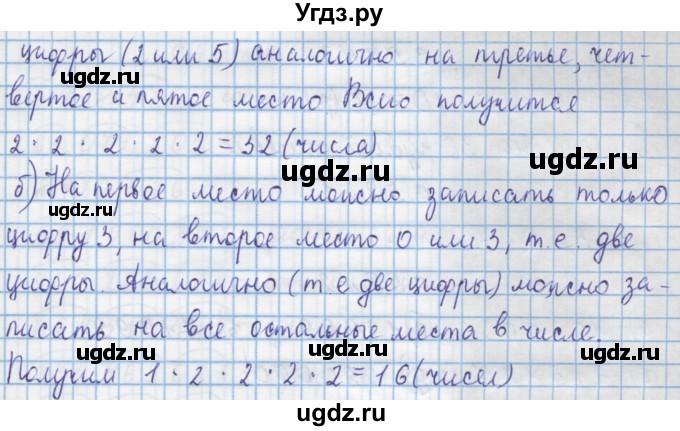 Угдз.ру
цифры (2 или 5) аналогично на третье, чет-
ugdz.ru ugdz.ru
вертое и пятое место Всио получится
2 · 2 · 2 · 2 · 2 = 32 (числа)
ugdz.ru
б) На первое место можно записать только
ugdz.ru ugdz.ru
цифру 3, на второе место 0 или 3, т.е. две
ugdz.ru
цифры. Аналогично (т.е две цифры) можно за-
ugdz.ru ugdz.ru
писать на все остальные места в числе.
ugdz.ru
Получим 1 · 2 · 2 · 2 · 2 = 16 (чисел)
ugdz.ru ugdz.ru